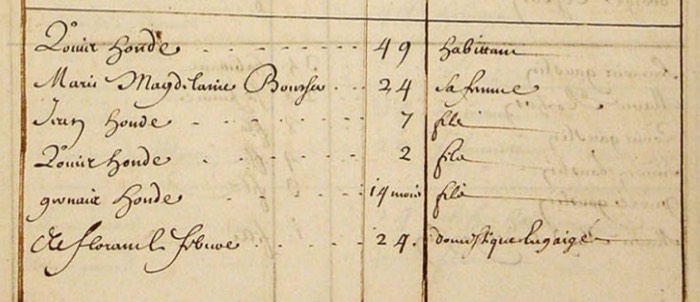 Louis Houde 49 habittant
Marie Magdelaine Boucher 24 sa femme
Jean Houde 7 filz
Louis Houde 2 filz
Houde 14 mois filz
Florant Lefebure 24. domestique Engaigé